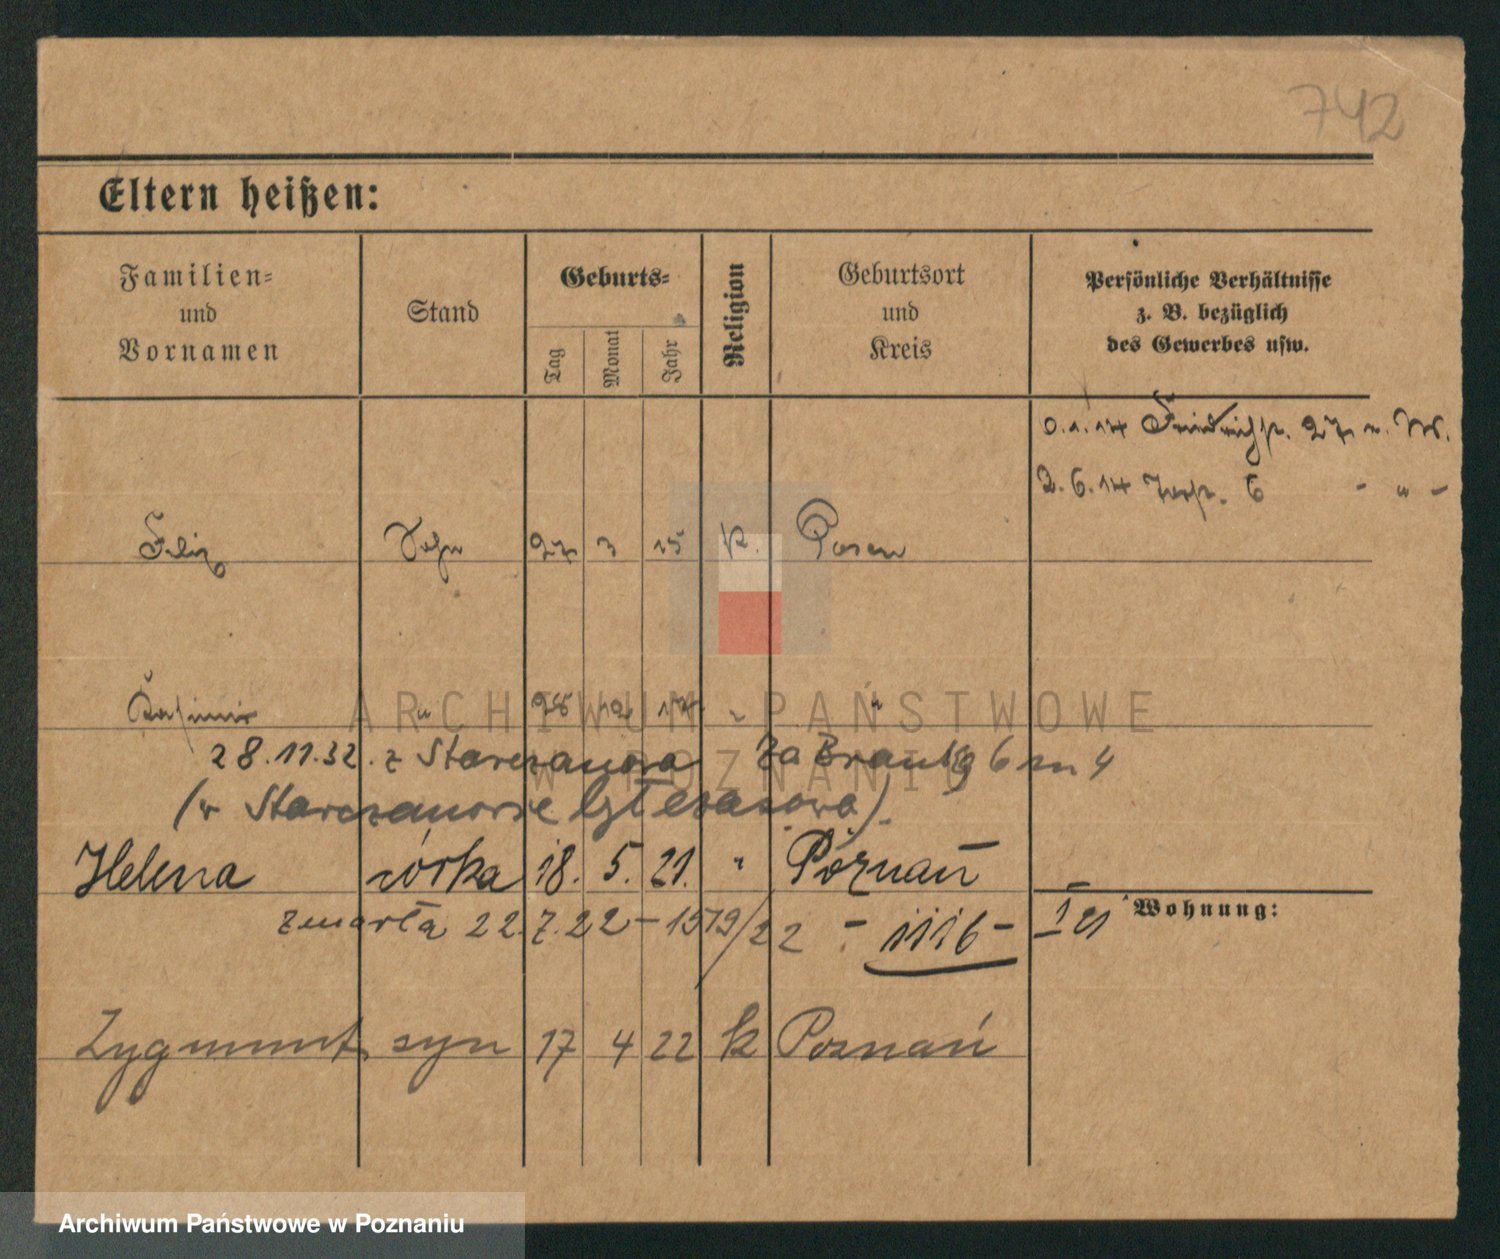 742
Eltern heißen:
Familien-
und
Vornamen
Stand
Geburts-
Tag
Monat
Jahr
Religion
Geburtsort
und
Kreis
Persönliche Verhältnisse
z. B. bezüglich
des Gewerbes usw.
.1.14 Friedrichstr. 27
2.6.14 6 " –
Felix Sohn 27 3 15 k. Posen
Kasimir " 28 " "
28.11.32. z Starczanowa za 6 m 4
(w Starczanowie
Helena córka 18. 5. 21. " Poznań
zmarła 22.7.22 – 1579/22 – 1116 – I 21
Wohnung:
Zygmunt syn 17 4 22 k Poznań
ARCHIWUM PAŃSTWOWE
W POZNANIU
Archiwum Państwowe w Poznaniu